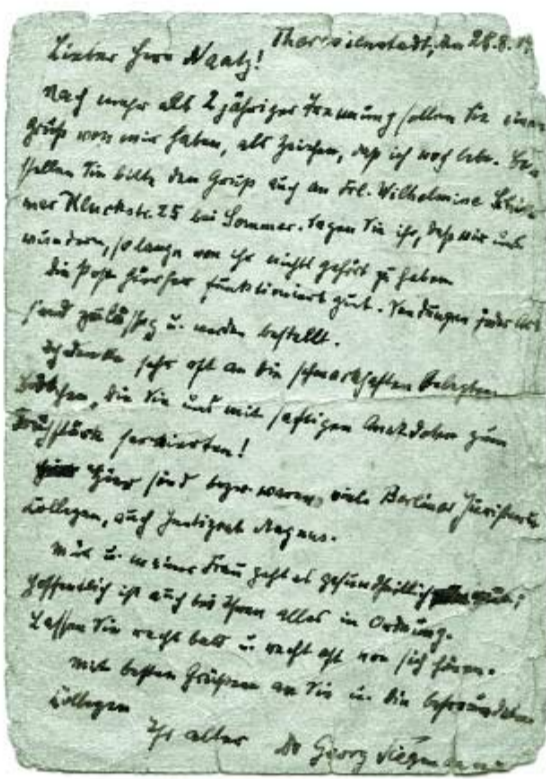 Theresienstadt, den 28.8.
Lieber Herr Naatz!
Nach mehr als 2 jähriger Trennung sollen Sie einen
Gruß von mir haben, als Zeichen, daß ich noch lebe. Be-
stellen Sie bitte den Gruß auch an Frl. Wilhelmine
Kluckstr. 25 bei Sommer. Sagen Sie ihr, daß wir uns
wundern, so lange von ihr nichts gehört zu haben
Die Post hierher funktioniert gut. Sendungen jeder Art
sind zulässig u. werden bestellt.
Ich denke sehr oft an die schmackhaften belegten
Brötchen, die Sie uns mit saftigen Anekdoten zum
Frühstück servierten!
Hier sind bezw. waren, viele Berliner Juristen,
Kollegen, auch Justizrat Magnus.
Mir u. meiner Frau geht es gesundheitlich
hoffentlich ist auch bei Ihnen alles in Ordnung.
Lassen Sie recht bald u. recht oft von sich hören.
Mit besten Grüßen an Sie u. die befreundeten
Kollegen
Ihr alter Dr Georg Siegmann